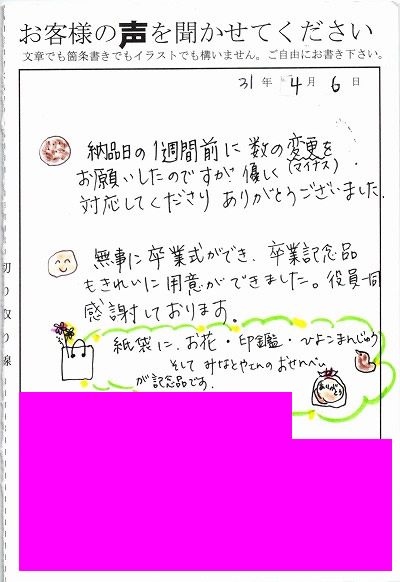 お客様の声を聞かせてください
文章でも箇条書きでもイラストでも構いません。ご自由にお書き下さい。
31年 4月 6日
納品日の1週間前に数の変更を
(マイナス)
お願いしたのですが優しく
対応してくださり ありがとうございました。
無事に卒業式ができ、卒業記念品
もきれいに用意ができました。役員一同
感謝しております。
紙袋に、お花・印鑑・ひよこまんじゅう
そして みなとやさんの おせんべい
が記念品です。
ありがとう
切り取り線